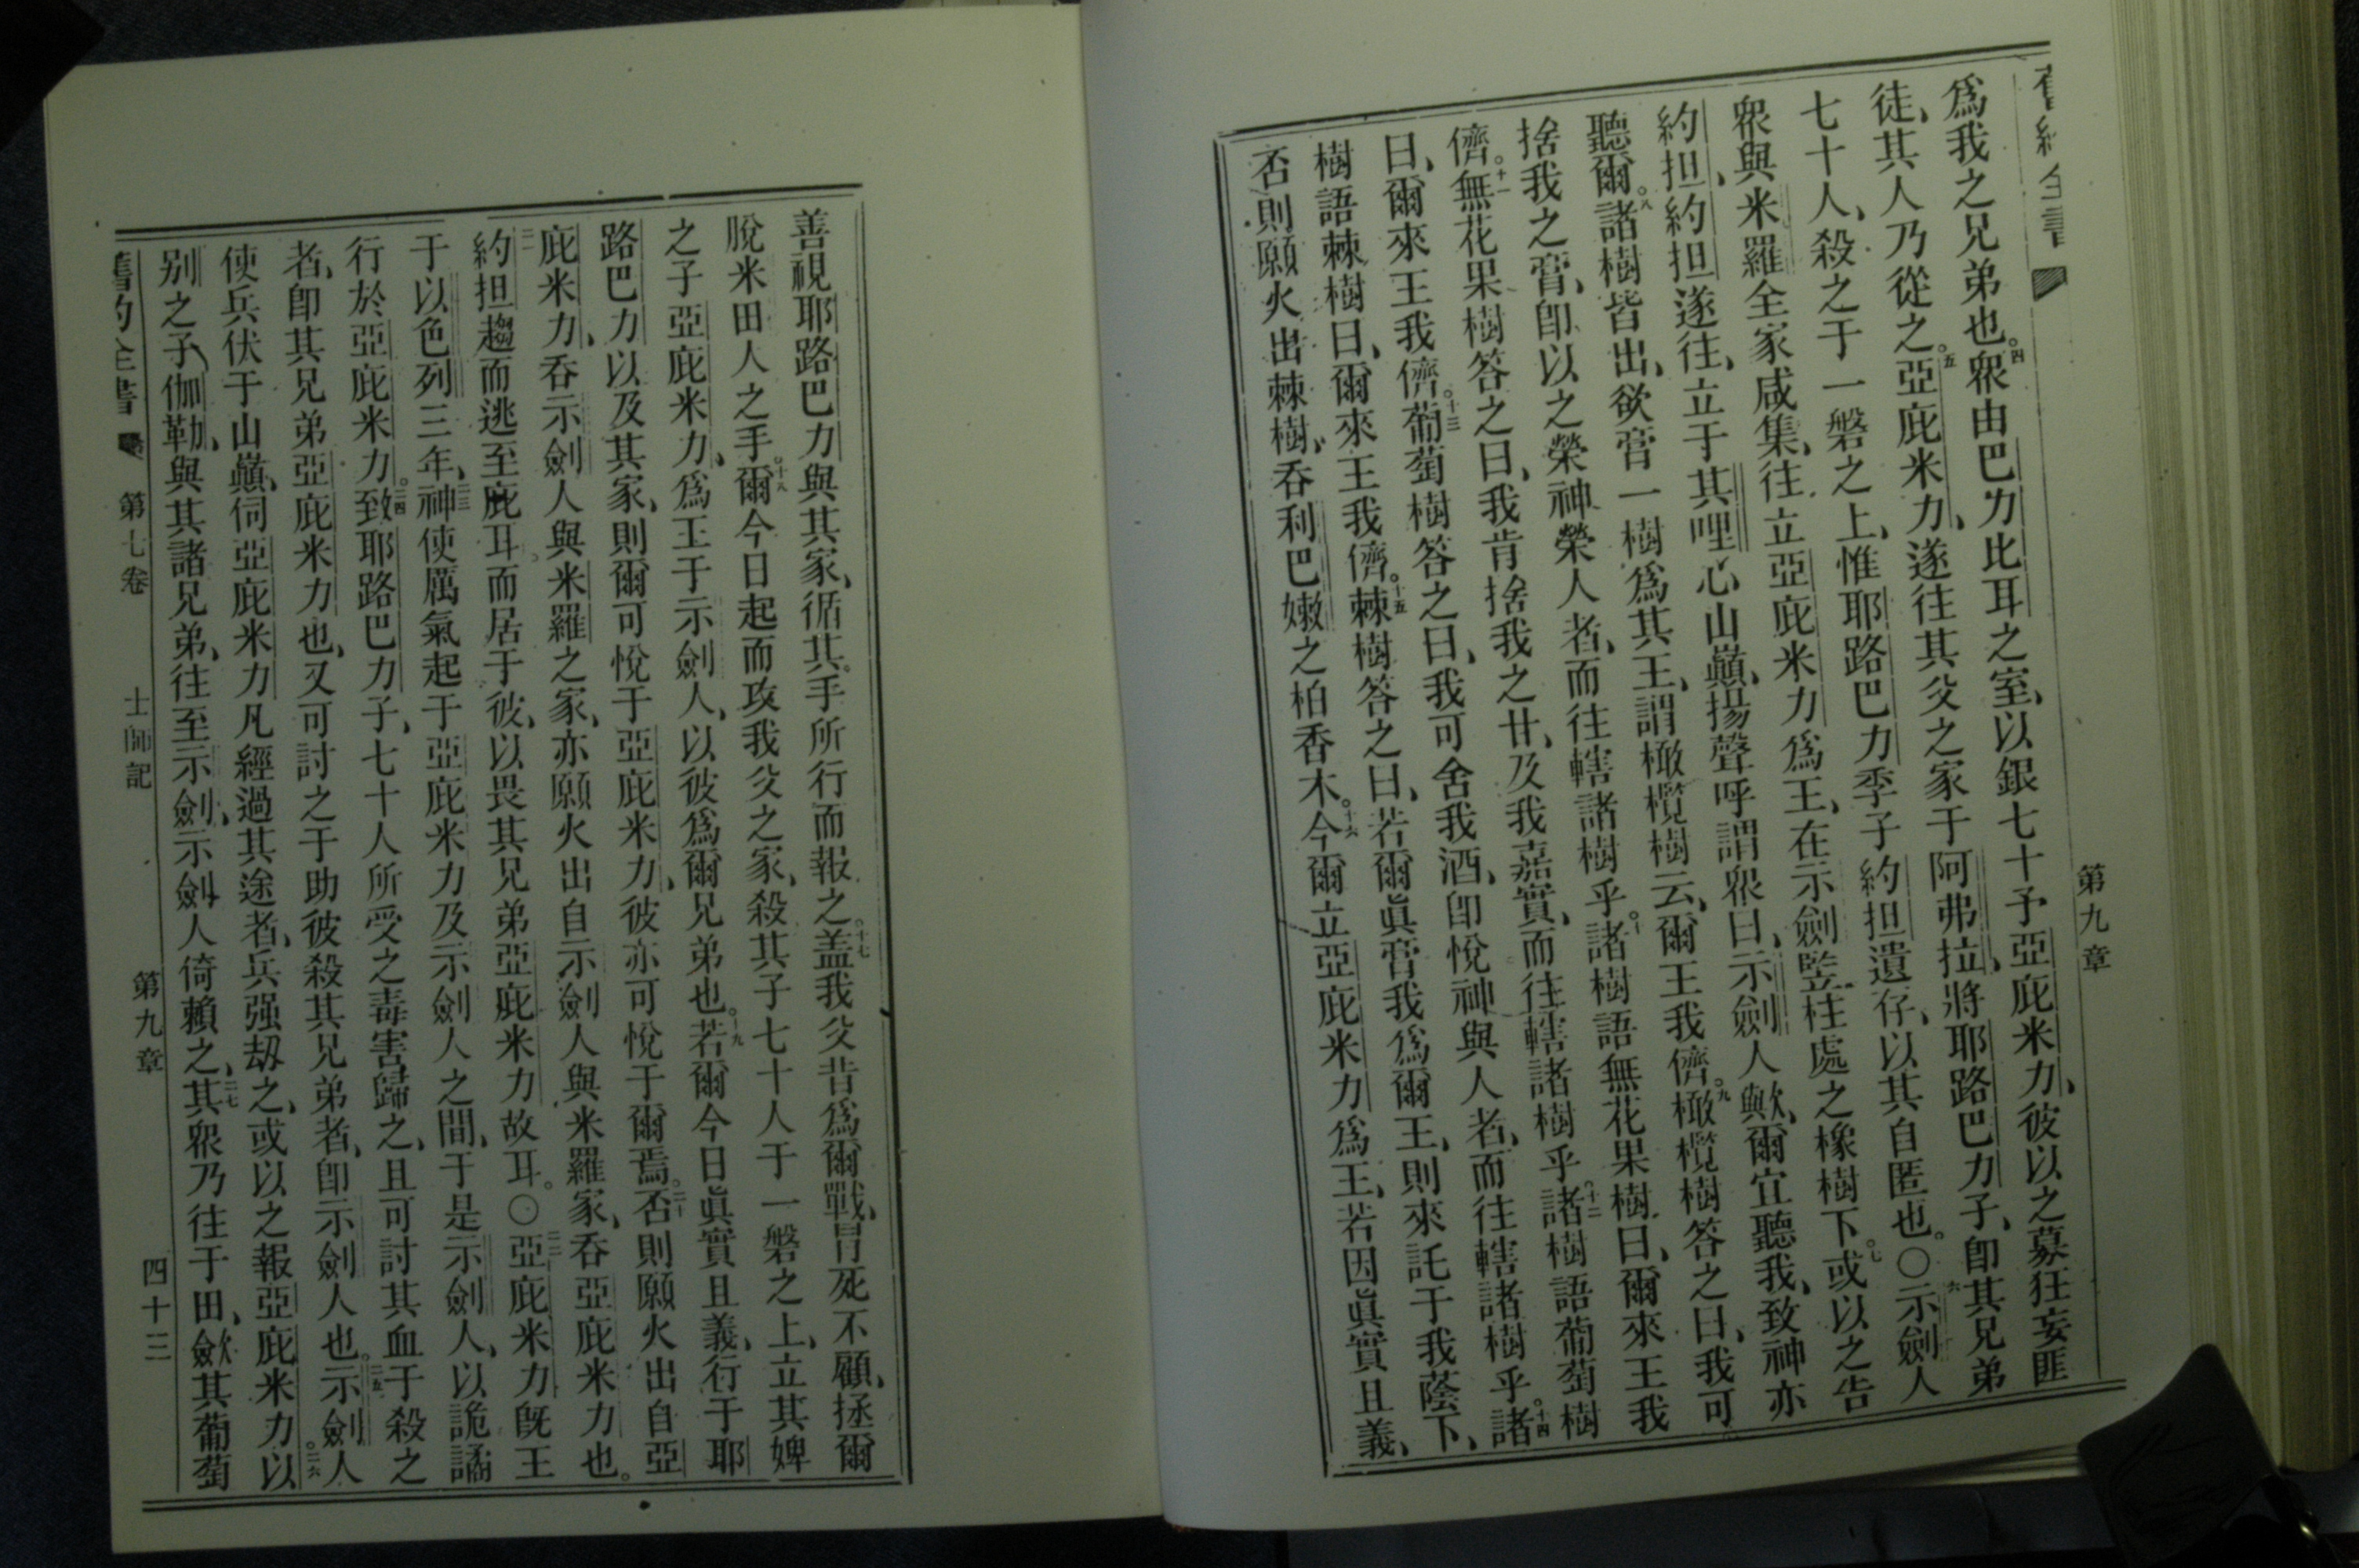 舊約全書 第九章
爲我之兄弟也。四衆由巴力比耳之室、以銀七十予亞庇米力、彼以之募狂妄匪
徒、其人乃從之。五亞庇米力、遂往其父之家于阿弗拉、將耶路巴力子、卽其兄弟
七十人、殺之于一磐之上、惟耶路巴力季子約担遺存、以其自匿也。〇六示劍人
衆與米羅全家咸集、往立亞庇米力爲王、在示劍監柱處之橡樹下。七或以之告
約担、約担遂往、立于其哩心山巔、揚聲呼謂衆曰、示劍人歟、爾宜聽我、致神亦
聽爾。八諸樹皆出、欲膏一樹爲其王、謂橄欖樹云、爾王我儕。九橄欖樹答之曰、我可
捨我之膏、卽以之榮神榮人者、而往轄諸樹乎。十諸樹語無花果樹曰、爾來王我
儕。十一無花果樹答之曰、我肯捨我之甘、及我嘉實、而往轄諸樹乎。十二諸樹語葡萄樹
曰、爾來王我儕。十三葡萄樹答之曰、我可舍我酒、卽悅神與人者、而往轄諸樹乎。十四諸
樹語棘樹曰、爾來王我儕。十五棘樹答之曰、若爾眞膏我爲爾王、則來託于我蔭下、
否則願火出棘樹、吞利巴嫩之柏香木。十六今爾立亞庇米力爲王、若因眞實且義、
善視耶路巴力與其家、循其手所行而報之。十七盖我父昔爲爾戰、冒死不顧、拯爾
脫米田人之手。十八爾今日起而攻我父之家、殺其子七十人于一磐之上、立其婢
之子亞庇米力、爲王于示劍人、以彼爲爾兄弟也。十九若爾今日眞實且義、行于耶
路巴力以及其家、則爾可悅于亞庇米力、彼亦可悅于爾焉。二十否則願火出自亞
庇米力、吞示劍人與米羅之家、亦願火出自示劍人與米羅家、吞亞庇米力也。
二一約担趨而逃至庇耳、而居于彼、以畏其兄弟亞庇米力故耳。〇二二亞庇米力旣王
于以色列三年、二三神使厲氣起于亞庇米力及示劍人之間、于是示劍人、以詭譎
行於亞庇米力。二四致耶路巴力子、七十人所受之毒害歸之、且可討其血于殺之
者、卽其兄弟亞庇米力也、又可討之于助彼殺其兄弟者、卽示劍人也。二五示劍人
使兵伏于山巔、伺亞庇米力凡經過其途者、兵强刼之、或以之報亞庇米力。二六以
别之子伽勒、與其諸兄弟、往至示劍、示劍人倚賴之、二七其衆乃往于田、歛其葡萄
舊約全書 第七卷 士師記 第九章 四十三